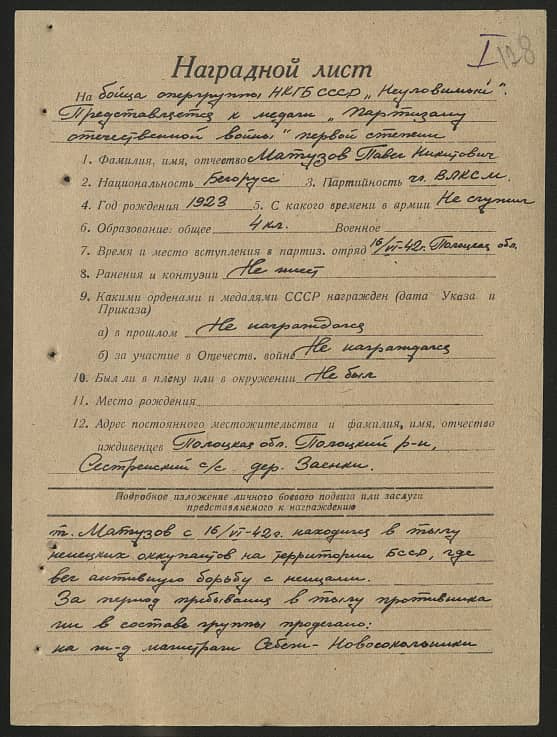 I 128
Наградной лист
На бойца опергруппы НКГБ СССР „Неуловимый".
Представляется к медали „Партизану
отечественной войны" первой степени
1. Фамилия, имя, отчество Матузов Павел Никитович
2. Национальность Белорусс 3. Партийность чл. ВЛКСМ.
4. Год рождения 1923 5. С какого времени в армии Не служил
6. Образование: общее 4 кл. Военное
7. Время и место вступления в партиз. отряд 16/VI-42г. Полоцкая обл.
8. Ранения и контузии Не имеет
9. Какими орденами и медалями СССР награжден (дата Указа и
Приказа)
а) в прошлом Не награждался
б) за участие в Отечеств. войне Не награждался
10. Был ли в плену или в окружении Не был
11. Место рождения
12. Адрес постоянного местожительства и фамилия, имя, отчество
иждивенцев Полоцкая обл. Полоцкий р-н,
с/с дер. Заенки.
Подробное изложение личного боевого подвига или заслуги
представляемого к награждению
т. Матузов с 16/VI-42г. находился в тылу
немецких оккупантов на территории БССР, где
вел активную борьбу с немцами.
За период пребывания в тылу противника
им в составе группы проделано:
на ж-д магистрали Себеж-Новосокольники